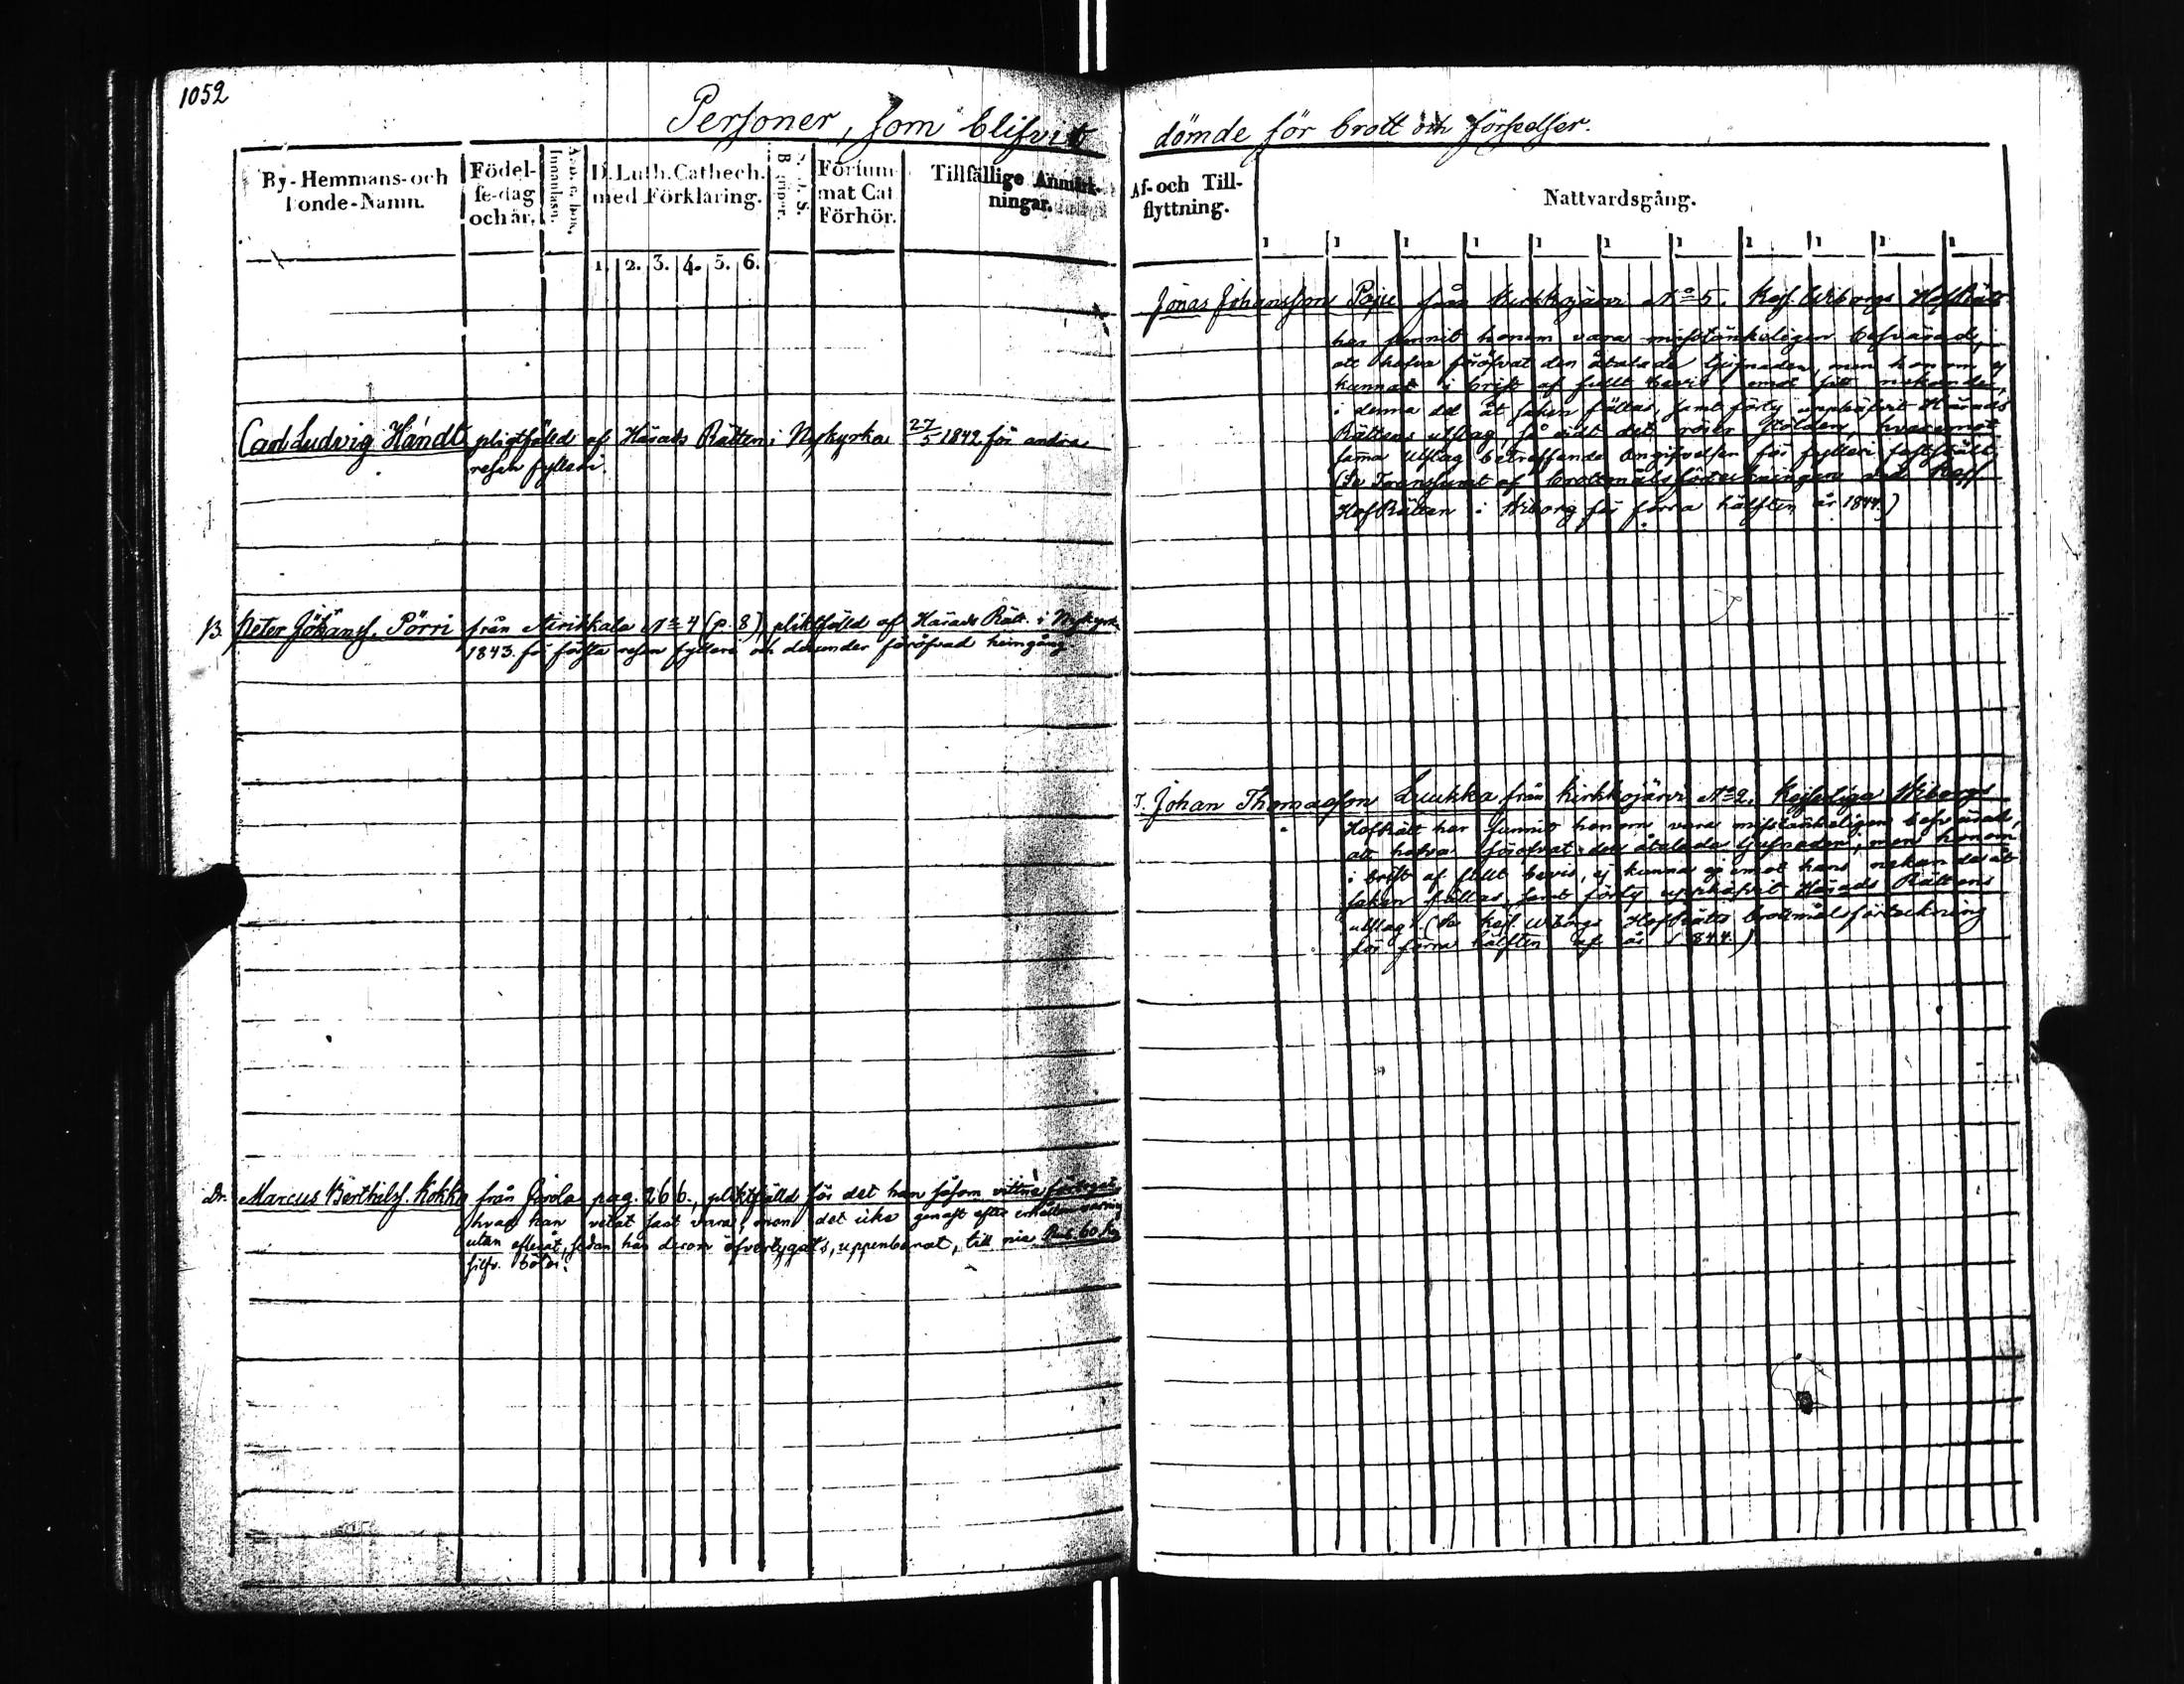 1052
Personer, som blifvit
dömde för brott och förseelser.
By-Hemmans-och
Bonde-Namn.
Födel-
se-dag
och år.
Innanläsn.
D. Luth. Cathech.
med Förklaring.
1. 2. 3. 4. 5. 6.
Försum-
mat Cat
Förhör.
Tillfällige Anmärk-
ningar.
Carl Ludvig Händt pligtfälld af Härads Rätten i Nykyrka 27/5 1842 för andra
resan fylleri.
B. Peter Johansf. Pörri från Airikkala No 4 (p. 8), pliktfälld af Härads Rätt. i Nykyrk
1843. för första resan fylleri och derunder föröfvad hemgång
Dr. Marcus Berthilsf. Kokko från Järola pag. 266., pliktfälld för det han såsom vittne förtegat
hvad han vetat sant vara, men det icke genast efter erhållen varning
utan efteråt, sedan han derom öfvertygats, uppenbarat, till nie Rub. 60 kp
silfv. böter.
Af- och Till-
flyttning.
Nattvardsgång.
1 1 1 1 1 1 1 1 1 1 1
Jonas Johansson Pojie från Kirkkojärvi No 5. Kejs. Wiborgs HofRätt
har funnit honom vara misstänkeligen besvärad,
att hafva föröfvat den åtalade tjufnaden, men honom ej
kunnat i brist af fullt bevis emot sitt nekande,
i denna del åt saken fällas, samt förty upphäfvit Härads
Rättens utslag, så vidt det rörer stölden, hvaremot
samma utslag beträffande angifvelsen för fylleri fastställt
(Se Transsumt af brottmålsförteckningen vid Kejs
HofRätten i Wiborg för förra hälften år 1844.)
T. Johan Thomasson Luukka från Kirkkojärvi No 2. Kejserliga Wiborgs
HofRätt har funnit honom vara misstänkeligen besvärad,
att hafva föröfvat den åtalada tjufnaden, men honom
i brist af fullt bevis, ej kunna emot hans nekande åt
saken fällas, samt förty upphäfvit Härads Rättens
utslag. (Se Kejs. Wiborgs HofRätts brottmålsförteckning
för förra hälften af år 1844.)